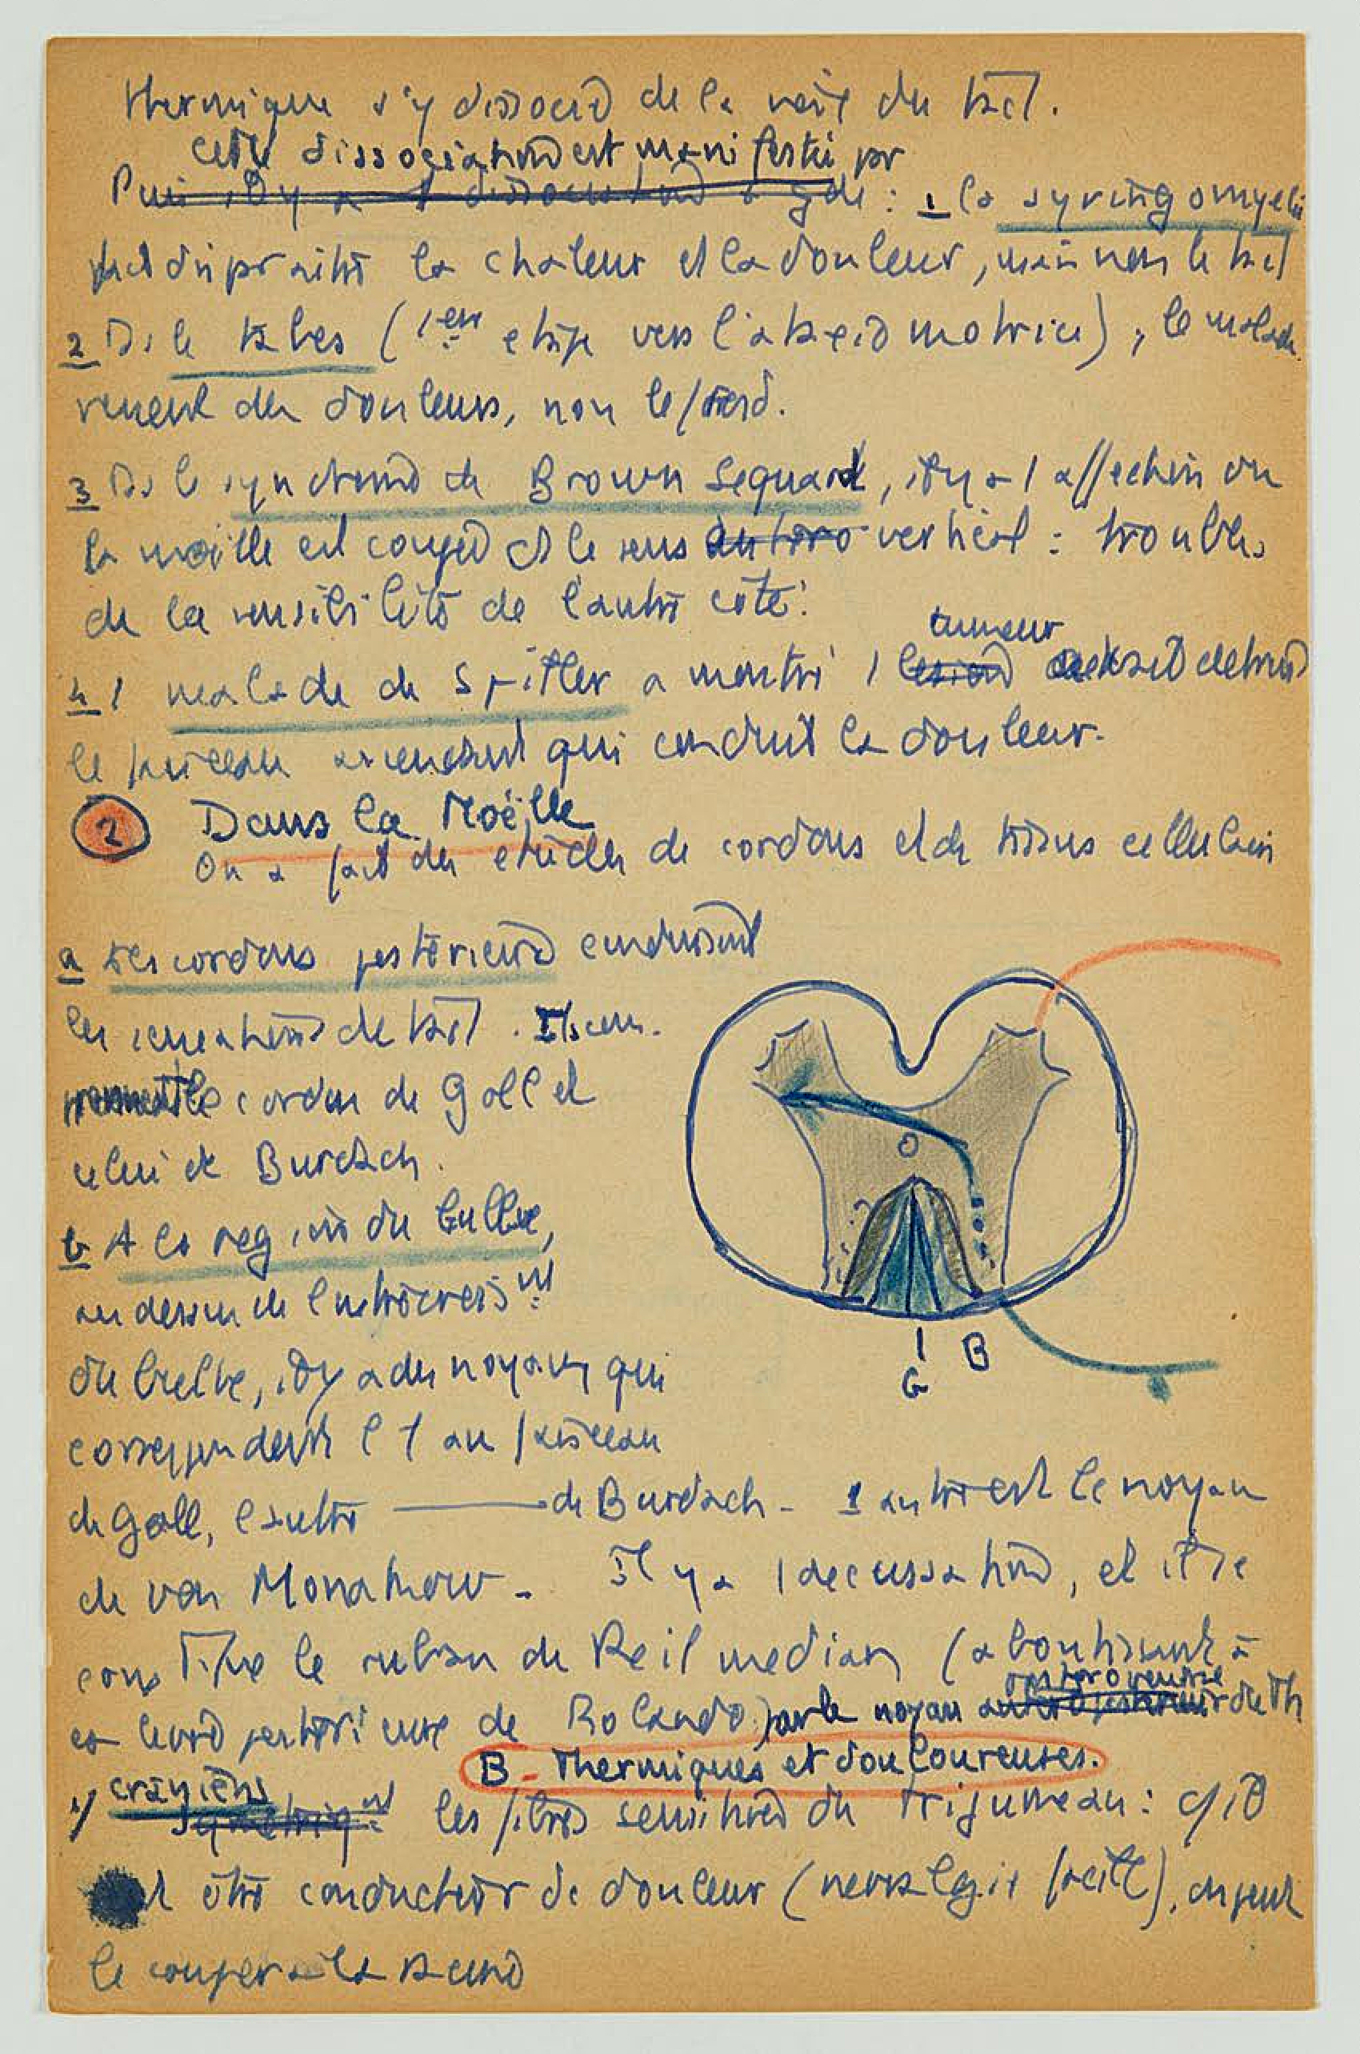 thermique s'y dissocie de la voie du tact.
cette dissociation est manifestée pr
Puis il y a 1 dissociation : 1 la syringomyélie
fait disparaître la chaleur et la douleur, mais non le tact
2 Ds le tabes (1ère étape vers l'ataxie motrice), le malade
ressent des douleurs, non le froid.
3 Ds le syndrome de Brown Sequard, il y a 1 affection où
la moëlle est coupée ds le sens antéro vertical : troubles
de la sensibilité de l'autre côté.
tumeur
4 1 malade de Spitler a montré 1 lésion détruit
le faisceau ascendant qui conduit la douleur.
2 Dans la Moëlle
On a fait des études de cordons et de tissus cellulaires
a Les cordons postérieurs conduisent
les sensations de tact. Ils com-
prennent le cordon de Goll et
celui de Burdach.
b A la région du bulbe,
au dessus de l'entrecroist
du bulbe, il y a des noyaux qui
correspondent l'1 au faisceau
de Goll, l'autre ——— de Burdach - 1 autre est le noyau
de von Monakow - Il y a 1 decussation, et il se
constitue le ruban de Reil median (aboutissant à
postero ventre
la bord postérieure de Rolando par le noyau du Th
B - Thermiques et douloureuses.
1/ crâniens les fibres sensitives du trijumeau :
être conducteur de douleur (nevralgie faciale), on peut
le couper à la
G
B